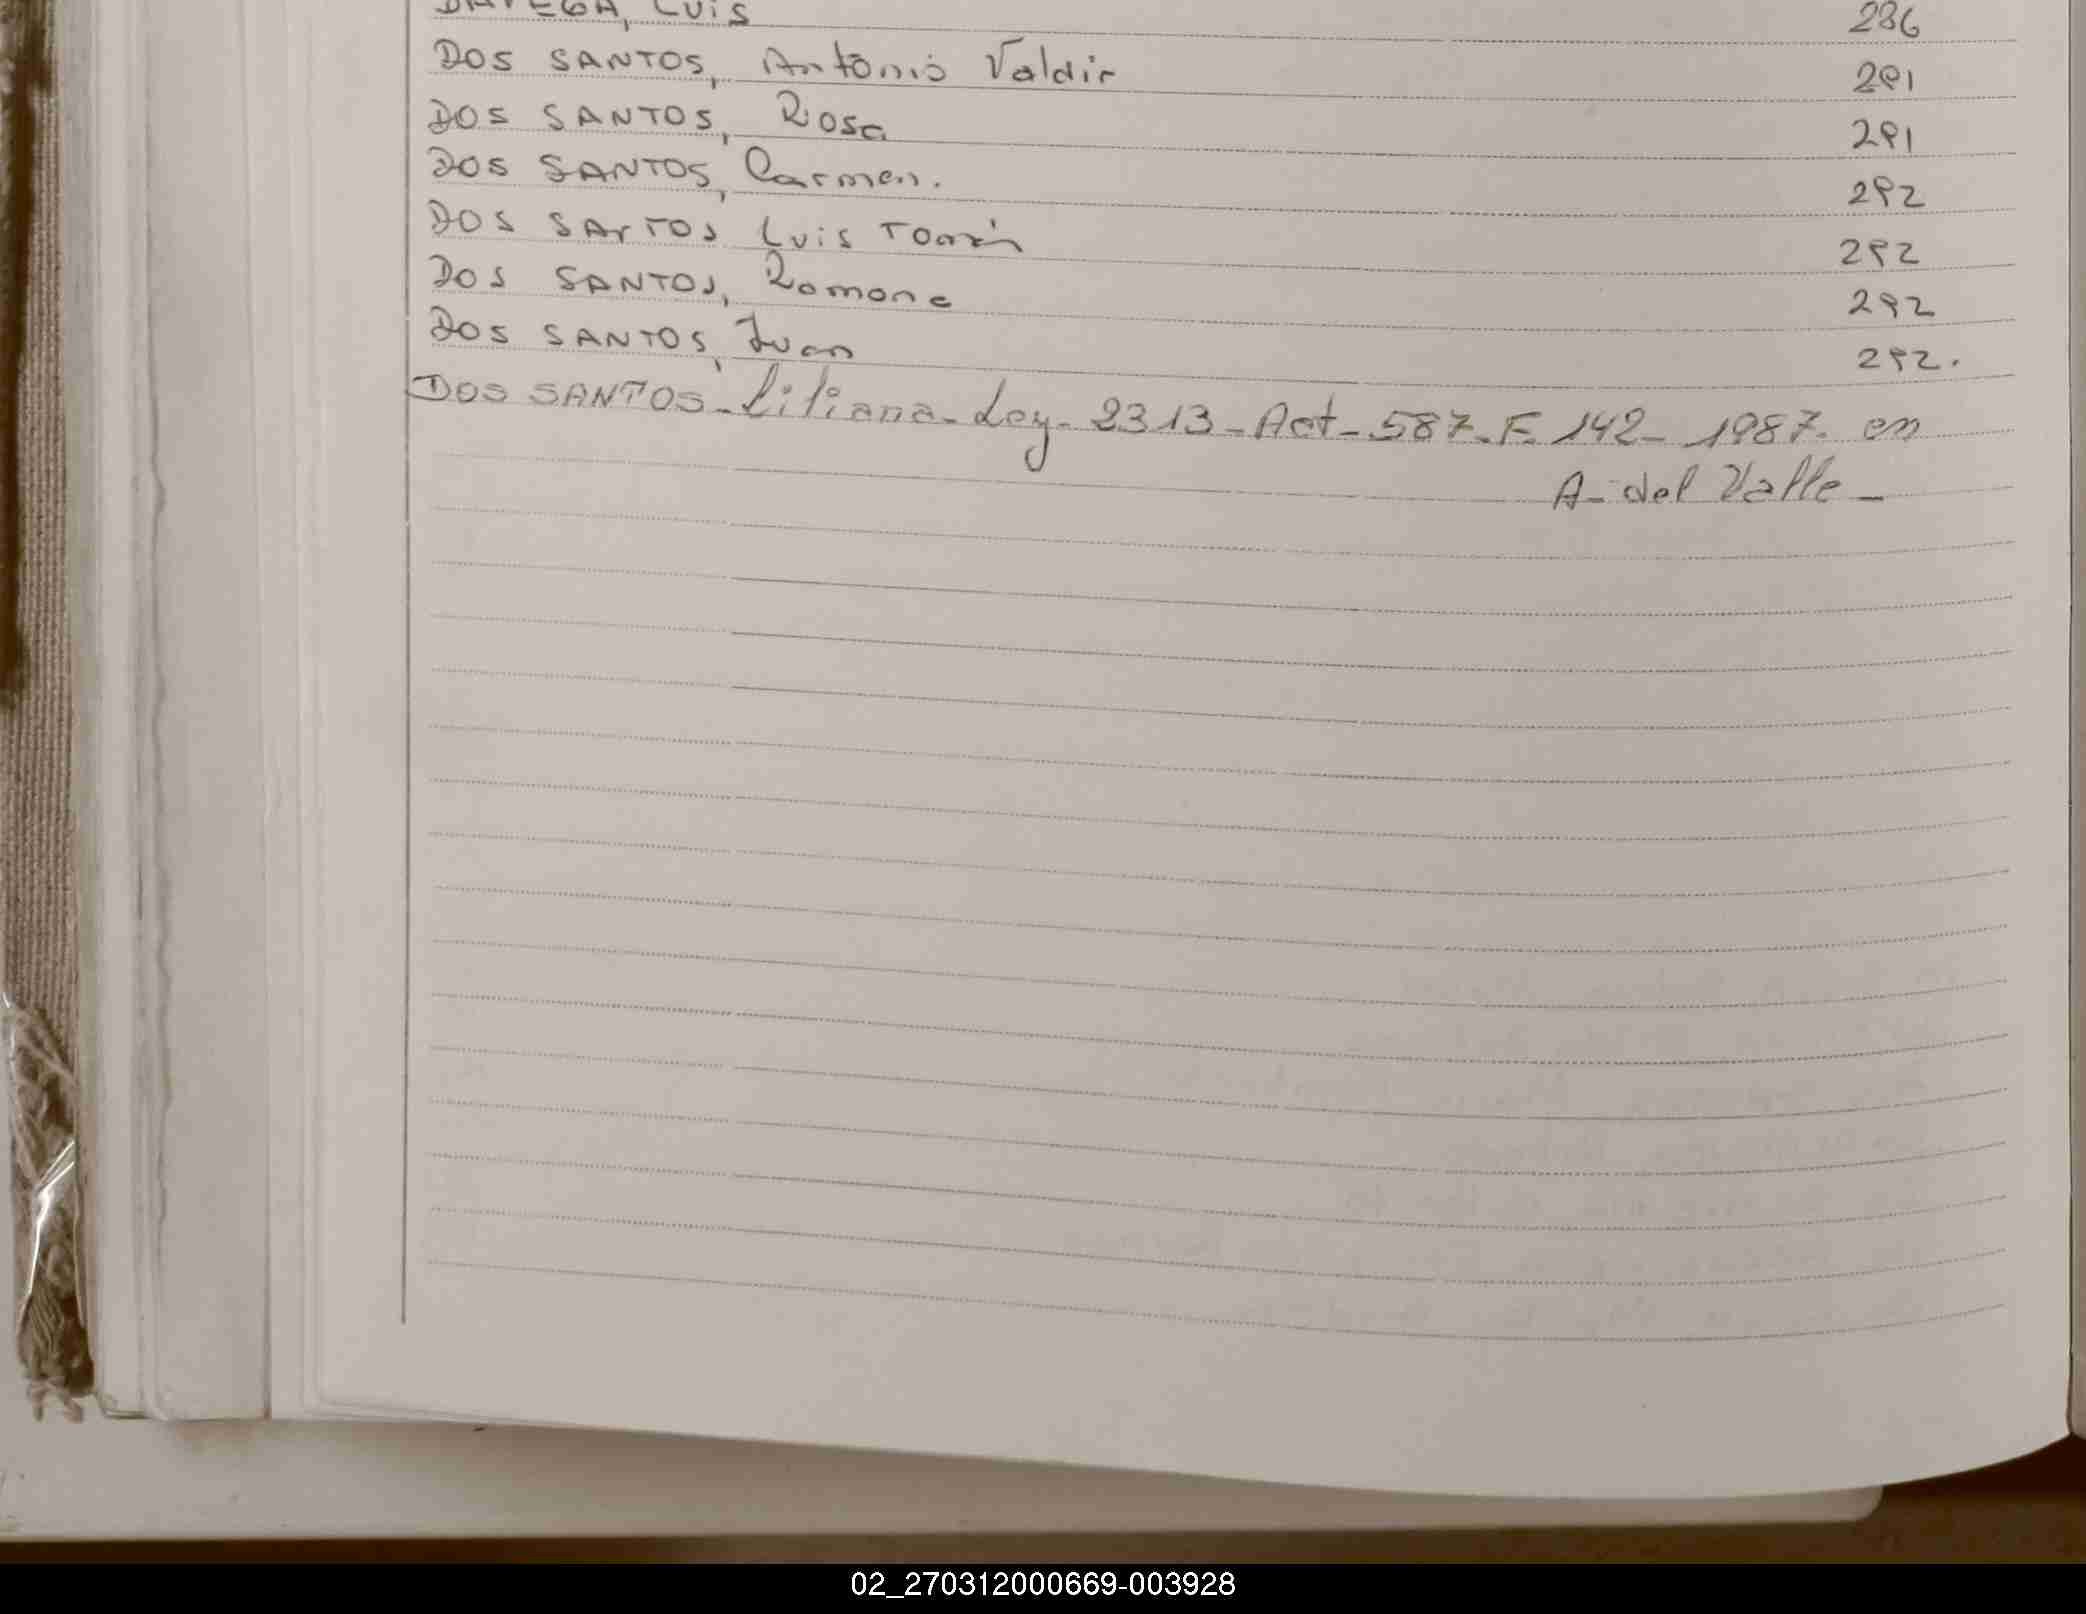 DAVEGA, LUIS 286
DOS SANTOS, Antônio Valdir 291
DOS SANTOS, Rosa 291
DOS SANTOS, Carmen. 292
DOS SANTOS Luis 292
DOS SANTOS, Ramona 292
DOS SANTOS, Juan 292.
DOS SANTOS - Liliana - Ley - 2313 - Act - 587 - F - 142 - 1987. en
A - del Valle -
02_270312000669-003928